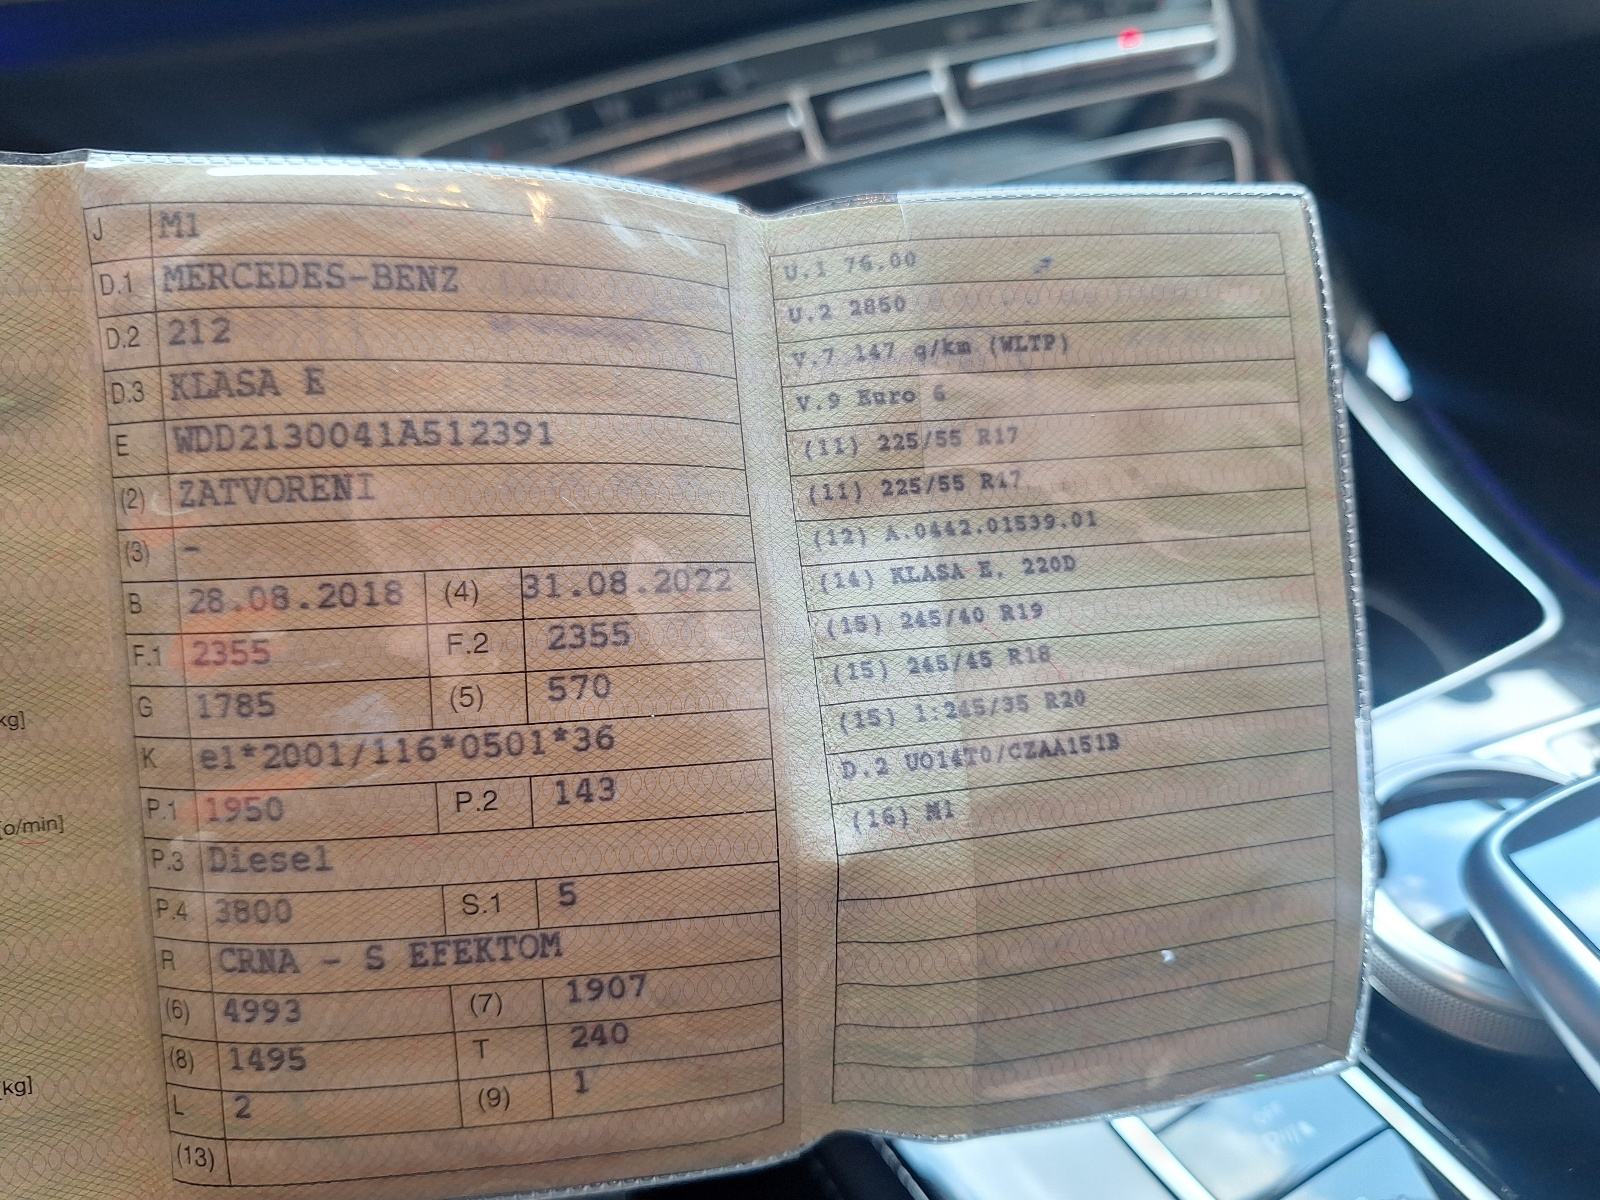 J M1
D.1 MERCEDES-BENZ
D.2 212
D.3 KLASA E
E WDD2130041A512391
(2) ZATVORENI
(3) -
B 28.08.2018 (4) 31.08.2022
F.1 2355 F.2 2355
G 1785 (5) 570
kg]
K e1*2001/116*0501*36
P.1 1950 P.2 143
[o/min]
P.3 Diesel
P.4 3800 S.1 5
R CRNA - S EFEKTOM
(6) 4993 (7) 1907
(8) 1495 T 240
[kg]
L 2 (9) 1
(13)
U.1 76.00
U.2 2850
V.7 147 g/km (WLTP)
V.9 Euro 6
(11) 225/55 R17
(11) 225/55 R17
(12) A.0442.01539.01
(14) KLASA E, 220D
(15) 245/40 R19
(15) 245/45 R18
(15) 1:245/35 R20
D.2 UO14T0/CZAA151B
(16) M1
OFF